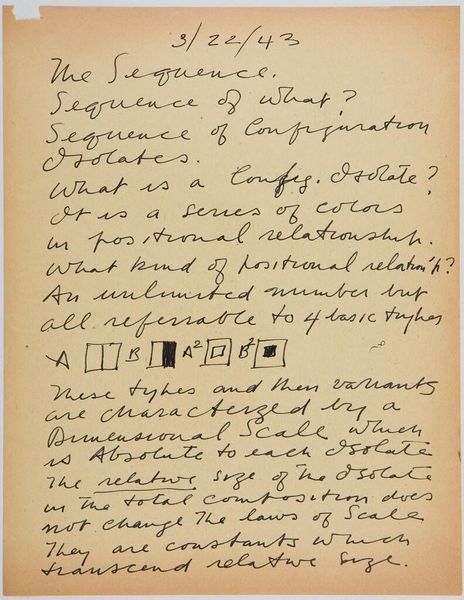 3/22/43
The Sequence.
Sequence of what?
Sequence of Configuration
Isolates.
What is a Config. Isolate?
It is a series of colors
in positional relationship.
What kind of positional relation'p?
An unlimited number but
all referrable to 4 basic types
A B A² B²
These types and their variants
are characterized by a
Dimensional Scale which
is Absolute to each Isolate
The relative size of the Isolate
in the total composition does
not change the laws of Scale
They are constants which
transcend relative size.